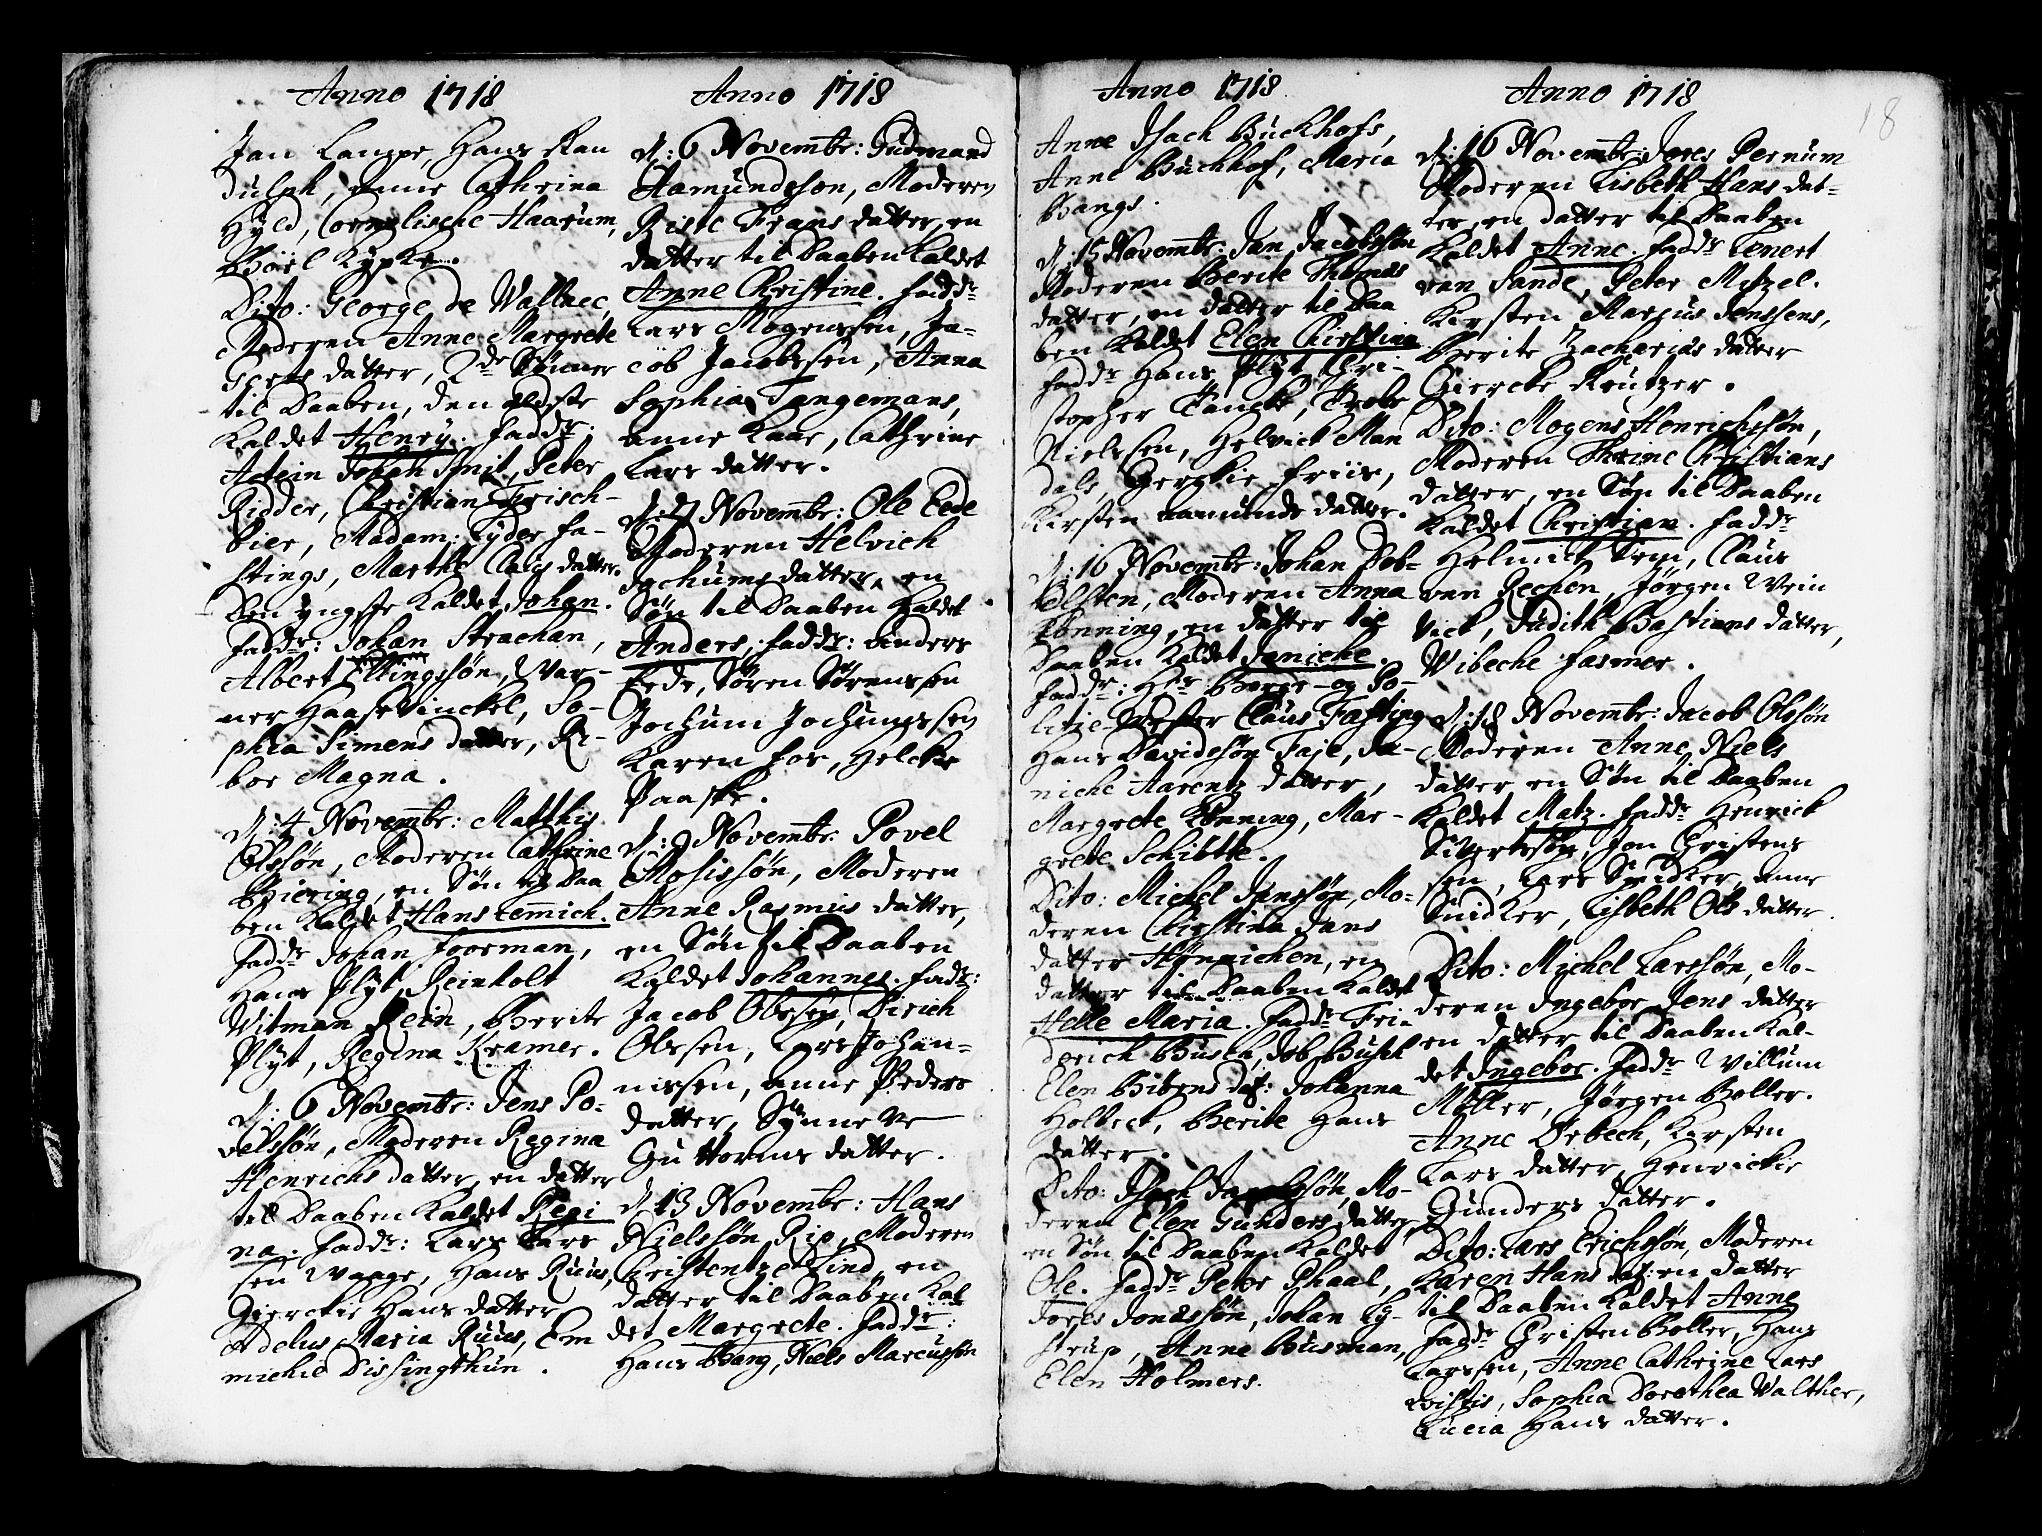 Anno 1718
Jan Lampe, Hans Ran
dulph, Anne Cathrina
Hyld, Cornelische Haarum,
Boel Kypke.
Dito: George de Wallace,
Moderen Anne Margrete
Gerts datter, 2de Sønner
til Daaben, den eldste
Kaldet Henry. Fadd:
Johan Smit, Peter
Ridder, Christian Frisch-
bier, Madam: Lyder Fa-
stings, Marthe Claus datter.
Den yngste Kaldet Johan.
Fadd: Johan Strachan,
Albert Ellingssøn, War-
ner Haasewinckel, So-
phia Simens datter, Ri-
bor Magna.
d: 4 Novembr: Matthis
Olssøn, Moderen Cathrine
Biering, en Søn til Daa
ben Kaldet Hans Lemmich.
Fadd: Johan Foorman,
Hans Plyt, Reinholt
Witman Rein, Berite
Plyt, Regina Kramer.
d: 6 Novembr: Jens Po-
velssøn, Moderen Regina
Henrichs datter, en datter
til Daaben Kaldet Regi
na. Fadd: Lars Lars
sen Waage, Hans Ruus,
Gierckie Hans datter
Adelus Maria Ruus, Em
michie Dissingthun.
Anno 1718
d: 6 Novembr: Gudmand
Hamundssøn, Moderen
Risle Frans datter, en
datter til Daaben Kaldet
Anne Christine. Fadd:
Lars Mogenssen, Ja-
cob Jacobssen, Anna
Sophia Tangemans,
Anne Kaae, Cathrine
Lars datter.
d: 7 Novembr: Ole Eede
Moderen Helvich
Jochums datter, en
Søn til Daaben Kaldet
Anders, Fadd: Anders
Eede, Søren Sørenssen
Jochum Jochumssen
Karen Fos, Helche
Paaske.
d: 9 Novembr: Povel
Mosissøn, Moderen
Anne Rasmus datter,
en Søn til Daaben
Kaldet Johannes. Fadd:
Jacob Olssen, Dirich
Olssen, Lars Johan-
nissen, Anne Peders
datter, Synneve
Guttorms datter.
d: 13 Novembr: Hans
Nielssøn Rip, Moderen
Christentze Lind, en
datter til Daaben Kal
det Margrete. Fadd:
Hans Bang, Niels Marcussøn
Anno 1718
Anne Isach Buckhofs,
Anne Buckhof, Maria
Bangs.
d: 15 Novembr: Jan Jacobssøn
Moderen Berite Thomas
datter, en datter til Daa
ben Kaldet Elen Christina
Fadd: Hans Plyt, Chri-
stopher Tanche,
Nielssen, Helvich Man
dals, Gerckie Friis,
Kirsten Aamunds datter.
d: 16 Novembr: Johan Dob-
belsten, Moderen Anna
Rønning, en datter til
Daaben Kaldet Janiche.
Fadd: Hr Borge- og Po-
litie Mester Claus Fasting
Hans Davidssøn Faje, Ja-
niche Aarentz datter,
Margrete Rønning, Mar-
grete Schibtte.
Dito: Michel Janssøn, Mo-
deren Christina Jans
datter Hønnichen, en
datter til Daaben Kaldet
Helle Maria. Fadd: Fri-
derich Busch, Job Busch
Elen Bibens dat: Johanna
Holbeck, Berite Hans
datter.
Dito: Isach Jacobssøn, Mo-
deren Elen Gunders datter
en Søn til Daaben Kaldet
Ole. Fadd: Peter Phaal,
Joris Jonassøn, Johan Ly-
strup, Anne Busman,
Elen Holmers.
Anno 1718
18
d: 16 Novembr: Jores Pernum
Moderen Lisbeth Hans dat-
ter, en datter til Daaben
Kaldet Anne. Fadd: Lenert
van Sande, Peter Mitzel.
Kirsten Marcus Jenssens,
Berite Zacharias datter
Giercke Krutzer.
Dito: Mogens Henrichssøn,
Moderen Thrine Christians
datter, en Søn til Daaben
Kaldet Christian. Fadd:
Helmich Sem, Claus
van Rechen, Jørgen Wein
vick, Judith Bastians datter,
Wibeche Fasmer.
d: 18 Novembr: Jacob Olssøn
Moderen Anne Niels
datter en Søn til Daaben
Kaldet Matz. Fadd: Henrick
Sivertssøn, Jon Christens
sen, Lars Snidker, Anne
Snidker, Lisbeth Ols datter.
Dito: Michel Larssøn, Mo-
deren Ingebor Jens datter
en datter til Daaben Kal-
det Ingebor. Fadd: Willum
Møller, Jørgen Boller.
Anne Debech, Kirsten
Lars datter, Henrickie
Gunders datter.
Dito: Lars Erichssøn, Moderen
Karen Hans dat: en datter
til Daaben Kaldet Anne
Fadd: Christen Boller, Hans
Larssen, Anne Cathrine Lars
Sophia Dorothea Walther,
Lucia Hans datter.